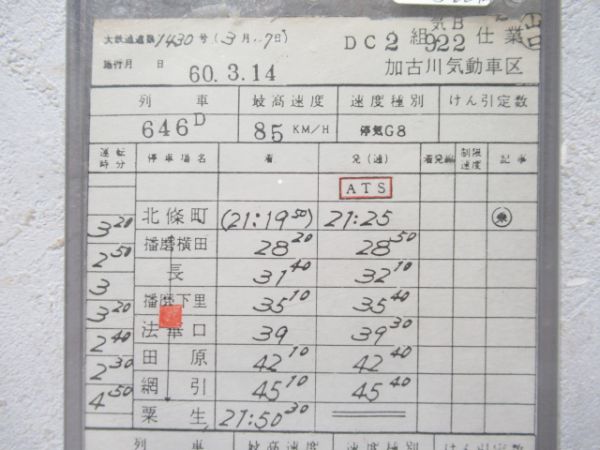 気B
大鉄達運1430号(3月7日)
DC2組922仕業
施行月 日
60.3.14
加古川気動車区
列車 最高速度 速度種別 けん引定数
646D 85 KM/H 停気G8
運転時分 停車場名 着 発(通) 着発線 制限速度 記事
ATS
北條町 (21:19 50) 21:25 乗
3 20
播磨横田 28 20 28 50
2 50
長 31 40 32 10
3
播磨下里 35 10 35 40
3 20
法華口 39 39 30
2 40
田原 42 10 42 40
2 30
網引 45 10 45 40
4 50
粟生 21:50 30
列車 最高速度 速度種別 けん引定数